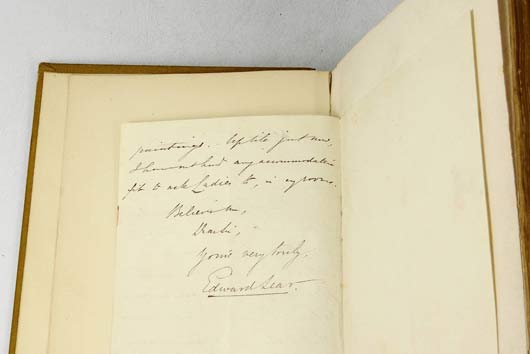 paintings. Up till just now,
I have not had any accommodation
fit to ask Ladies to, in my rooms.
Believe me,
Dear Sir,
Yours very truly.
Edward Lear.